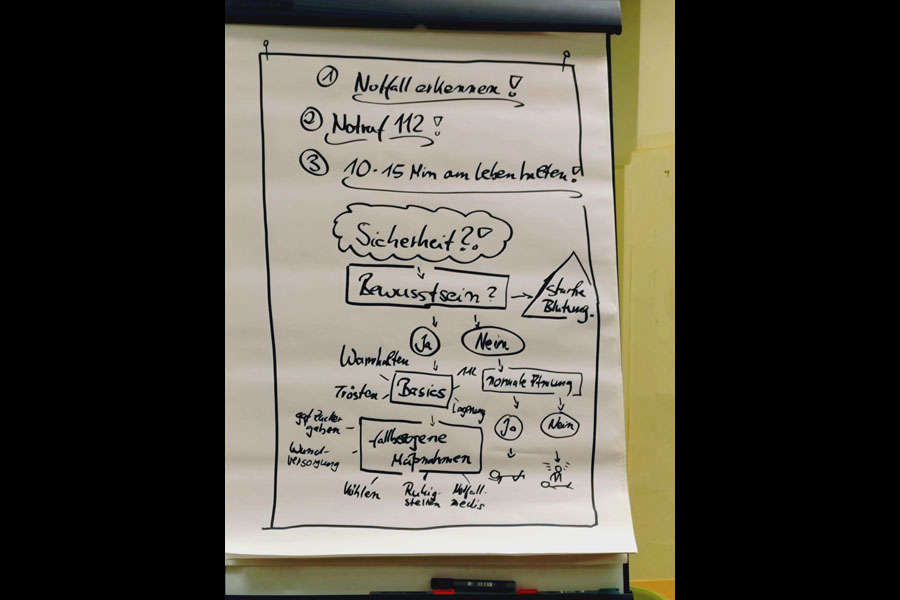 ① Notfall erkennen!
② Notruf 112!
③ 10-15 Min am Leben halten!
Sicherheit?!
Bewusstsein?
Starke
Blutung.
Ja
Nein
Warmhalten
Trösten
Basics
112
Lagerung
normale Atmung
Ja
Nein
ggf Zucker
geben
Wund-
versorgung
fallbezogene
Maßnahmen
Kühlen
Ruhig-
stellen
Notfall.
medis